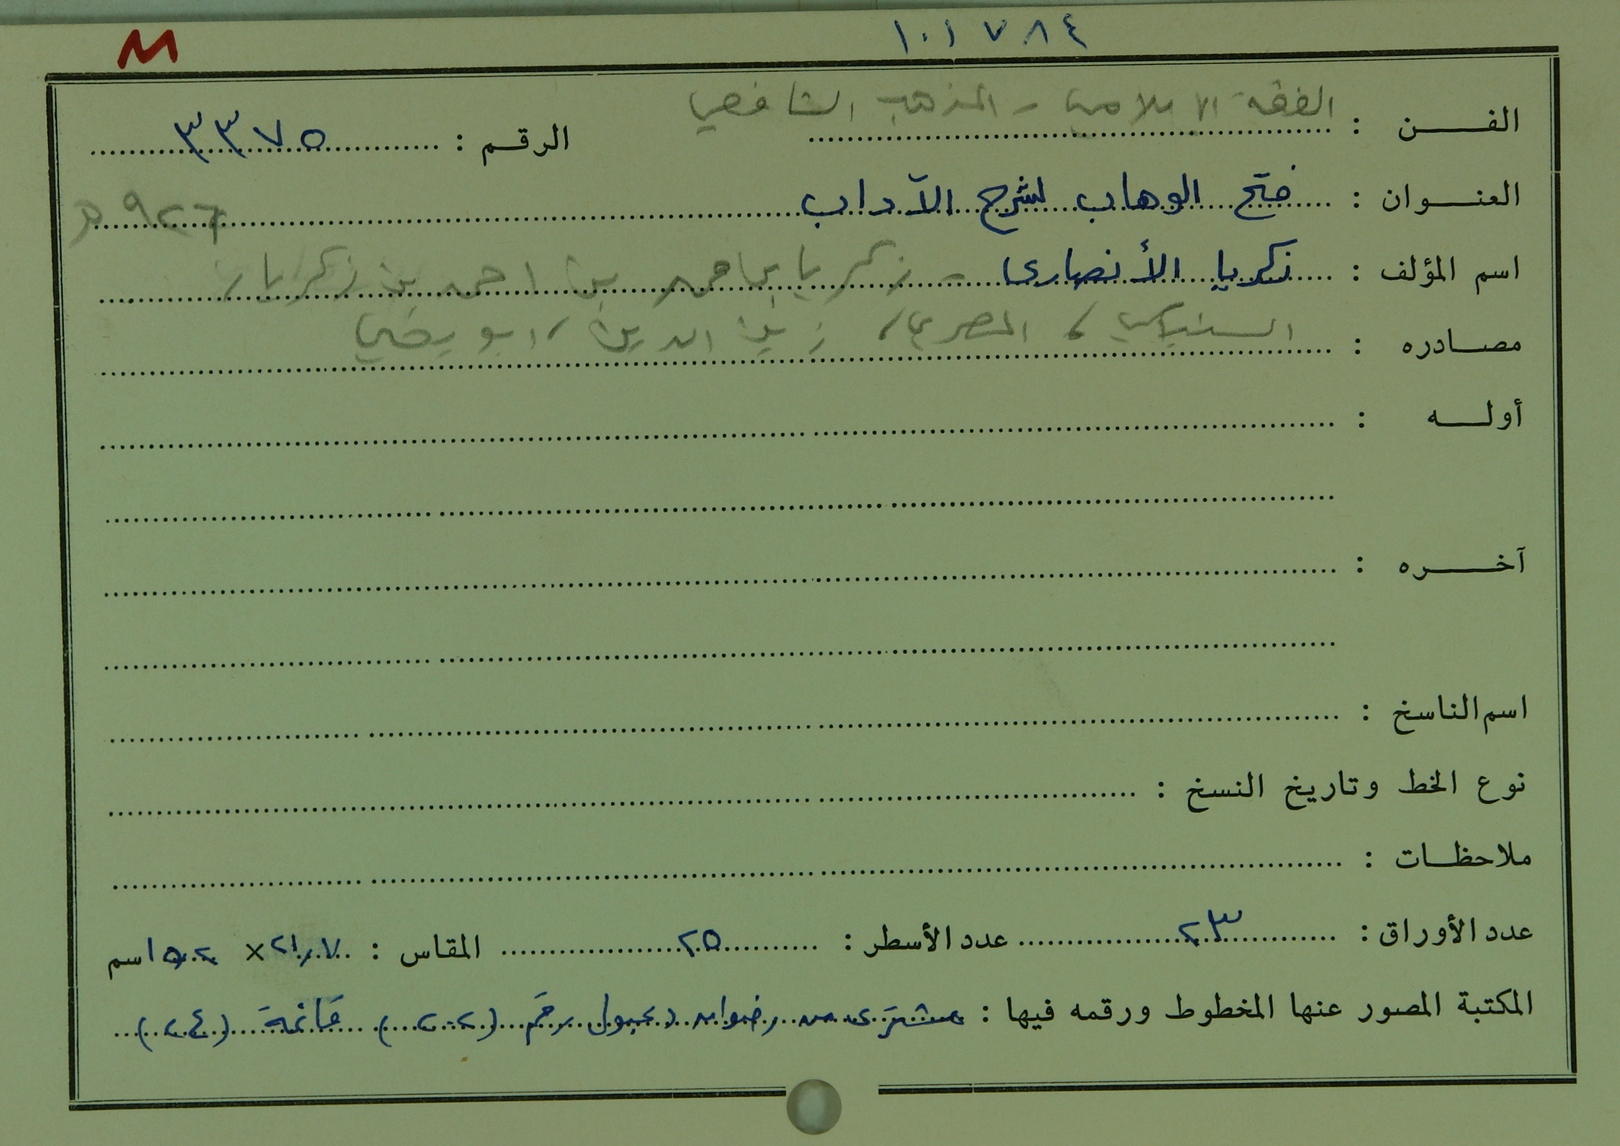 M
١٠١٧٨٤
الفن : الفقه الاسلامي - المذهب الشافعي
الرقم : ٣٣٧٥
العنوان : فتح الوهاب لشرح الآداب
٩٢٦ هـ
اسم المؤلف : زكريا الأنصارى - زكريا بن محمد بن احمد بن زكريا
السنيكي ، المصري ، زين الدين ، ابو يحي
مصادره :
أوله :
آخره :
اسم الناسخ :
نوع الخط وتاريخ النسخ :
ملاحظات :
عدد الأوراق : ٢٣ عدد الأسطر : ٢٥ المقاس : ٢١,٧ × ١٥,٢ سم
المكتبة المصور عنها المخطوط ورقمه فيها : مشترى من رضوان دعبول برقم (٢٠٢) قائمة (٢٤)